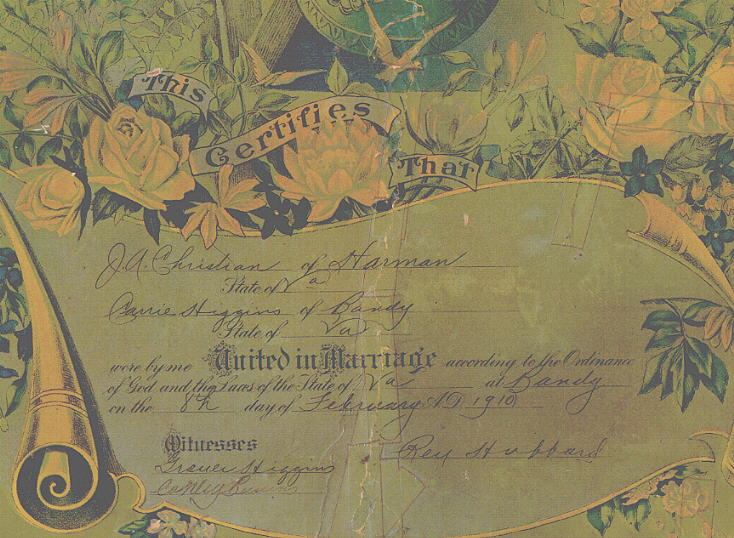 This
Certifies
That
J.A. Christian of Harman
State of Va
Carrie Higgins of Bandy
State of Va
were by me United in Marriage according to the Ordinance
of God and the Laws of the State of Va at Bandy
on the 8th day of February A.D. 1910
Witnesses Rev Hubbard
Higgins